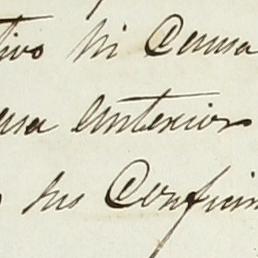 tivo ni Causa
ausa anterior
sus Confin